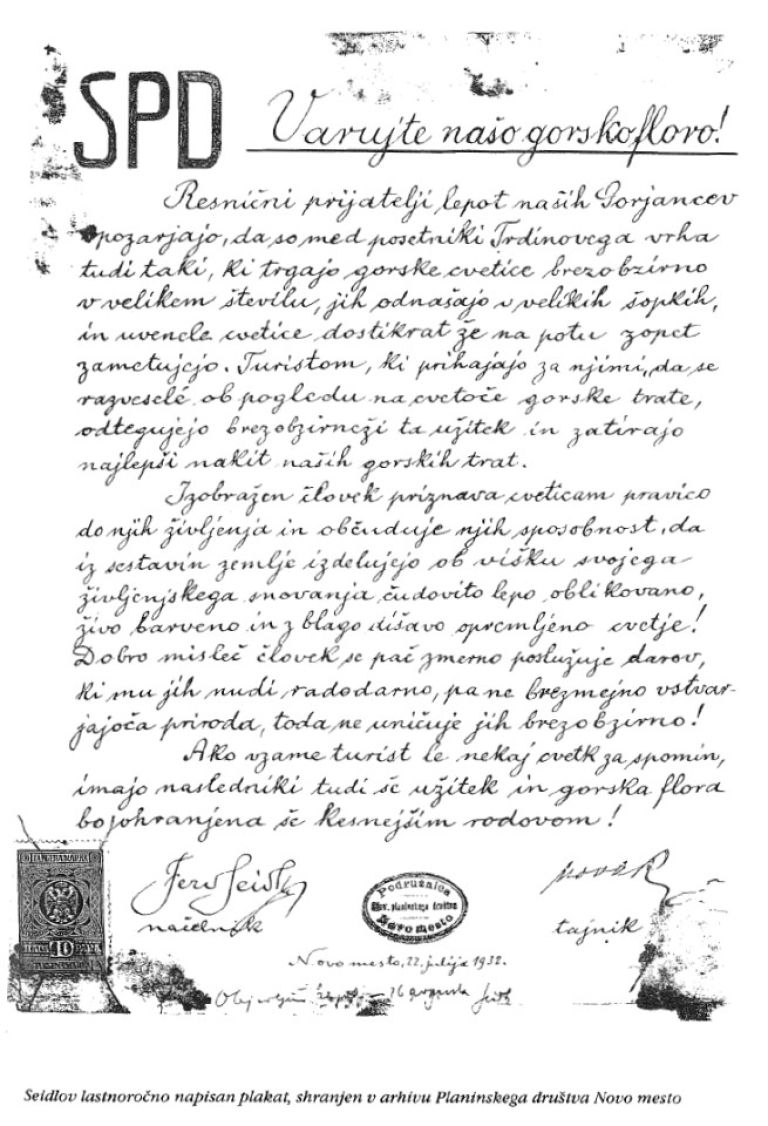 SPD
Varujte našo gorsko floro!
Resnični prijatelji lepot naših Gorjancev
opozarjajo, da so med posetniki Trdinovega vrha
tudi taki, ki trgajo gorske cvetice brezobzirno
v velikem številu, jih odnašajo v velikih šopkih,
in uvenele cvetice dostikrat že na potu zopet
zametujejo. Turistom, ki prihajajo za njimi, da se
razveselé ob pogledu na cvetoče gorske trate,
odtegujejo brezobzirneži ta užitek in zatirajo
najlepši nakit naših gorskih trat.
Izobražen človek priznava cveticam pravico
do njih življenja in občuduje njih sposobnost, da
iz sestavin zemlje izdelujejo ob višku svojega
življenjskega snovanja čudovito lepo oblikovano,
živo barveno in z blago dišavo opremljeno cvetje!
Dobro misleč človek se pač zmerno poslužuje darov,
ki mu jih nudi radodarno, pa ne brezmejno vstvar-
jajoča priroda, toda ne uničuje jih brezobzirno!
Ako vzame turist le nekaj cvetk za spomin,
imajo nasledniki tudi še užitek in gorska flora
bo johranjena še kesnejšim rodovom!
Ferd Seidl
načelnik
Podružnica
Slov. planinskega društva
Novo mesto
tajnik
10 PARA
Novo mesto, 22. julija 1932.
16 avgusta Seidl
Seidlov lastnoročno napisan plakat, shranjen v arhivu Planinskega društva Novo mesto